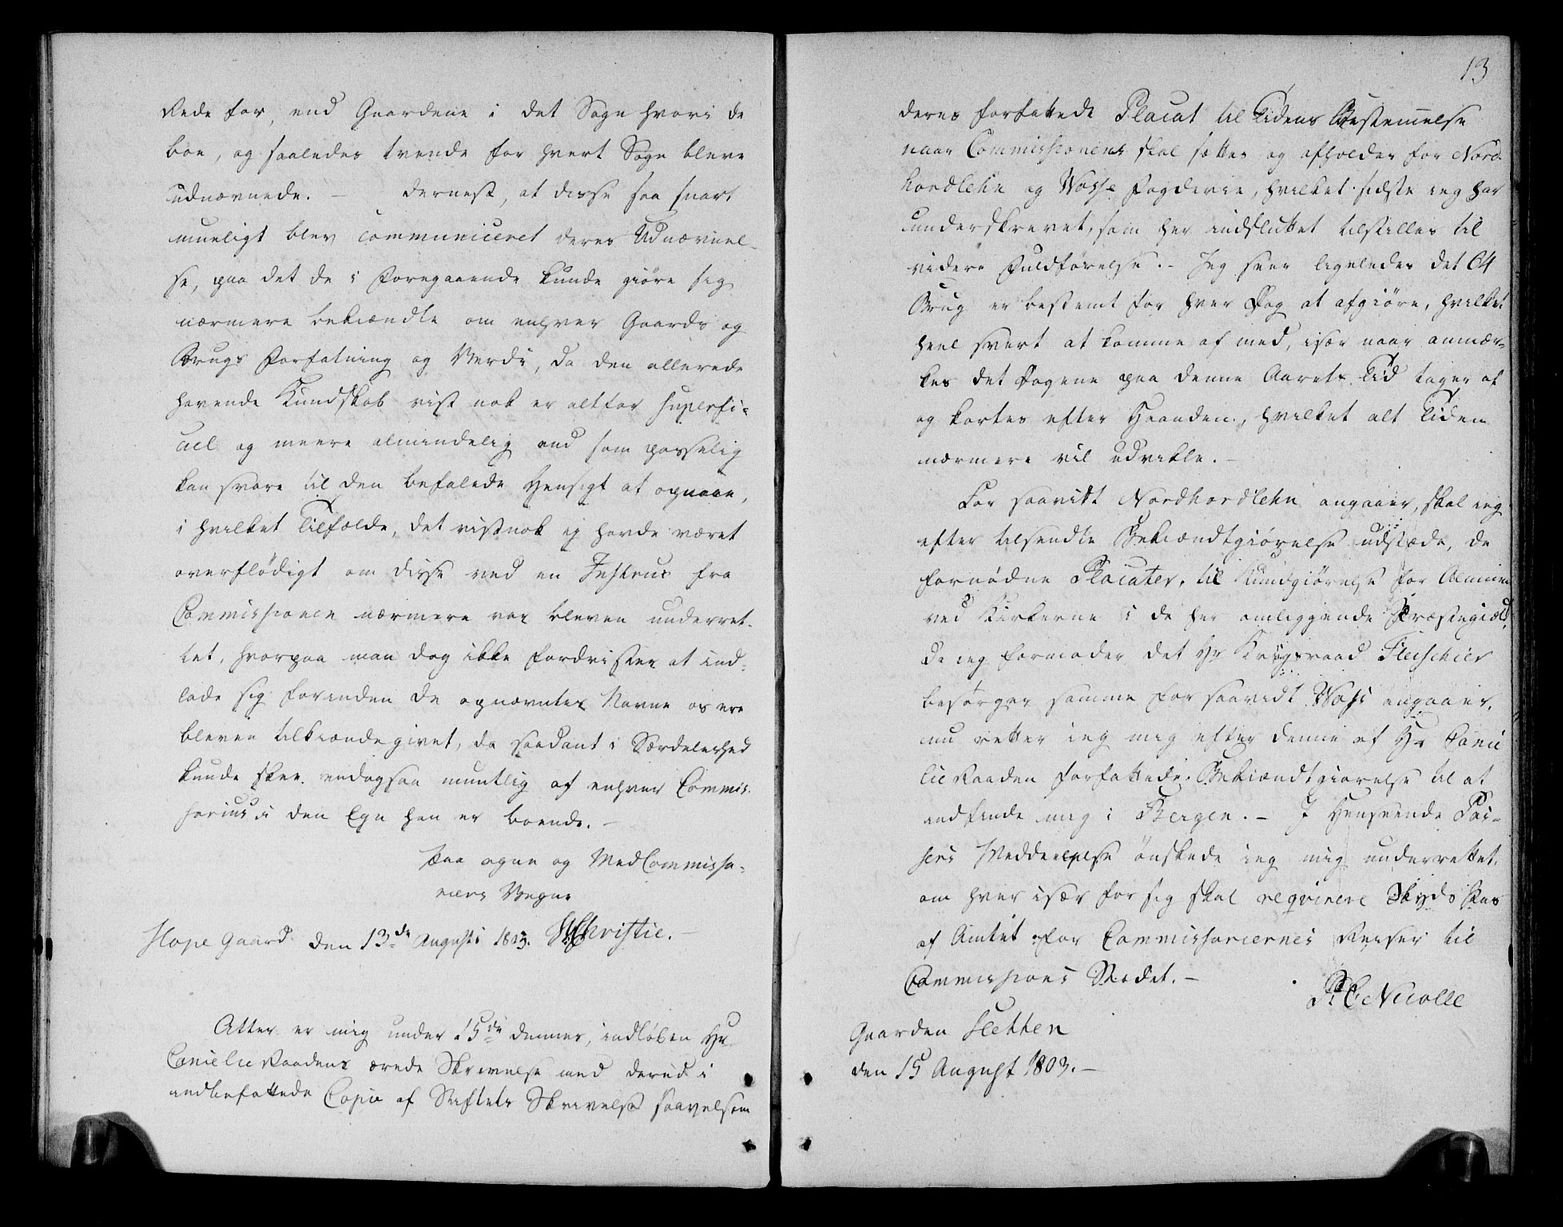 Rede for, end Gaardene i det Sogn hvori de
boe, og saaledes tvende for hvert Sogn bleve
udnævnede. – Dernest, at disse saa snart
mueligt blev communiceret deres Udnævnel-
se, paa det de i Foregaaende kunde giøre sig
nærmere bekiendte om enhver Gaards og
Brugs Forfatning og Verdi, da den allerede
havende Kundskab vist nok er altfor superfi-
ciel og meere almindelig end som passelig
kan svare til den befalede Hensigt at opnaae,
i hvilket Tilfælde, det vistnok ej havde været
overflødigt om disse ved en Instrux fra
Commissionen nærmere var bleven underret-
tet, hvorpaa man dog ikke fordrister at ind-
lade sig forinden de opnævntes Navne os ere
bleven tilkiendegivet, da saadant i Særdeleshed
kunde skee endogsaa muntlig af enhver Commis-
sarius i den Egn han er boende. –
Paa egne og MedCommissa-
riers Vegne
Hope Gaard den 13de Augusti 1803. WChristie. –
Atter er mig under 15de dennes, indløben Hr
Cancelie Raadens ærede Skrivelse med derudi
indbefattede Copie af Stiftets Skrivelse saavelsom
13
deres forfattede Placat til Tidens Bestemmelse
naar Commissionens skal sættes og afholdes for Nord-
hordlehn og Vosse Fogderie, hvilket sidste jeg har
underskrevet, som her indsluttet tilstilles til
videre Fuldførelse. – Jeg seer ligeledes det 64
Brug er bestemt for hver Dag at afgiøre, hvilket
heel svert at komme af med, især naar anmær-
kes det Dagene paa denne Aarets Tid tager af
og kortes efter Haanden, hvilket alt Tiden
nærmere vil udvikle. –
For saavidt Nordhordlehn angaaer, skal jeg
efter tilsendte Bekiendtgiørelse udstæde, de
fornødne Placater, til Kundgiørelse for Almuen
ved Kirkerne i de her omliggende Præstegield,
da jeg formoder det Hr Krigsraad Fleischer
besørger samme for saavidt Voss angaaer,
nu retter jeg mig efter denne af Hr Cance
lie Raaden forfattede Bekiendtgiørelse til at
indfinde mig i Bergen. – I Henseende
Meddeelelse ønskede jeg mig underrettet,
om hver især for sig skal reqvirere Skyds
af Amtet for Commissariernes Reiser til
Commissions Stedet. –
Nicolle
Gaarden Sletten
den 15 August 1803. –